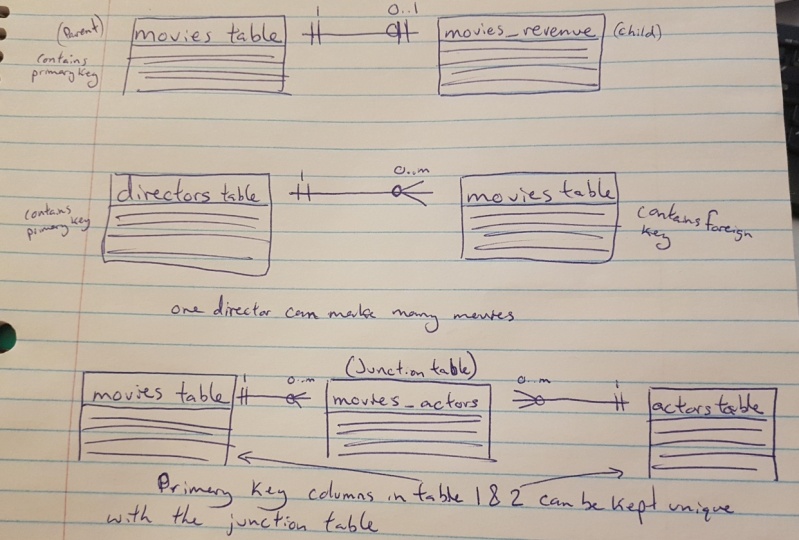 1 0..1
(Parent) movies table movies_revenue (child)
contains
primary key
1 0..m
directors table movies table
contains
primary key
contains foreign
key
one director can make many movies
(Junction table)
1 0..m 0..m 1
movies table movies_actors actors table
Primary Key columns in table 1 & 2 can be kept unique
with the junction table